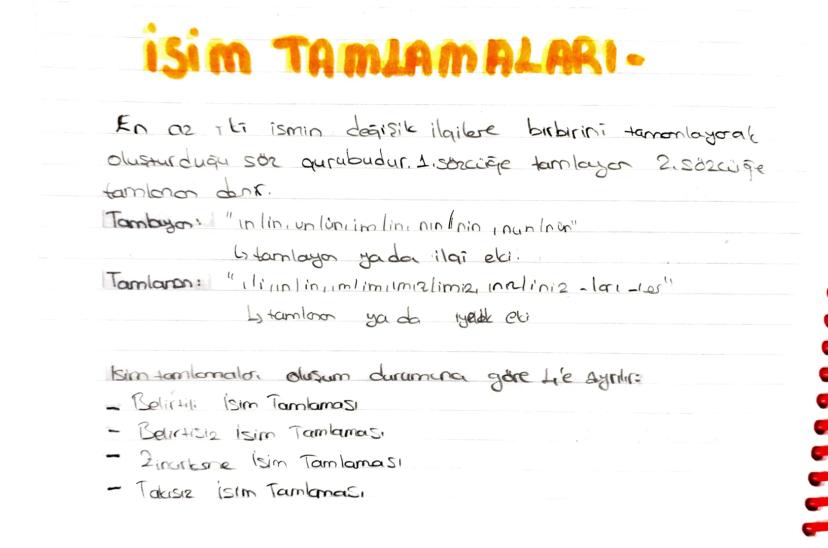 İSİM TAMLAMALARI.
En az iki ismin değişik ilgilere birbirini tamamlayarak
oluşturduğu söz gurubudur. 1.sözcüğe tamlayan 2.sözcüğe
tamlanan denir.
Tamlayan: "ın/in, un/ün, ım/im, nın/nin, nun/nün"
↳ tamlayan yada ilgi eki.
Tamlanan: "ı/i, ın/in, ım/im, ımız/imiz, ınız/iniz -ları -ler"
↳ tamlanan yada iyelik eki
İsim tamlamaları oluşum durumuna göre 4'e ayrılır:
- Belirtili İsim Tamlaması
- Belirtisiz İsim Tamlaması
- Zincirleme İsim Tamlaması
- Takısız İsim Tamlaması